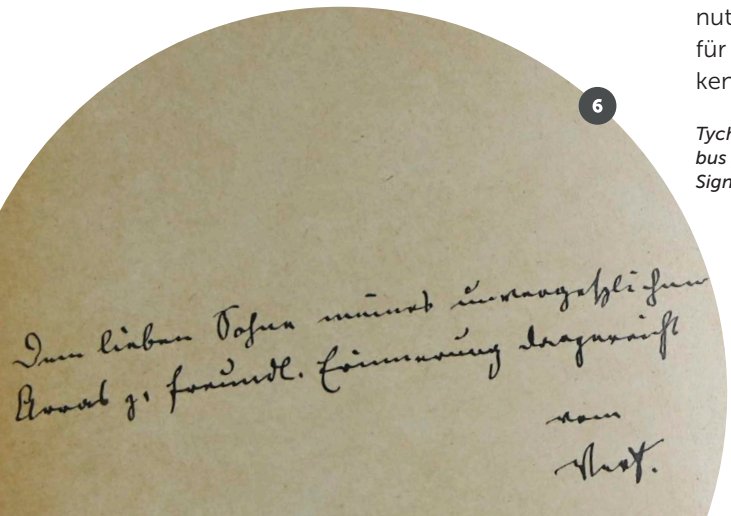 nut
für
ken
6
Tych
bus
Sign
Dem lieben Sohne meines unvergeßlichen
Arras z. freundl. Erinnerung dargereicht
vom
Verf.